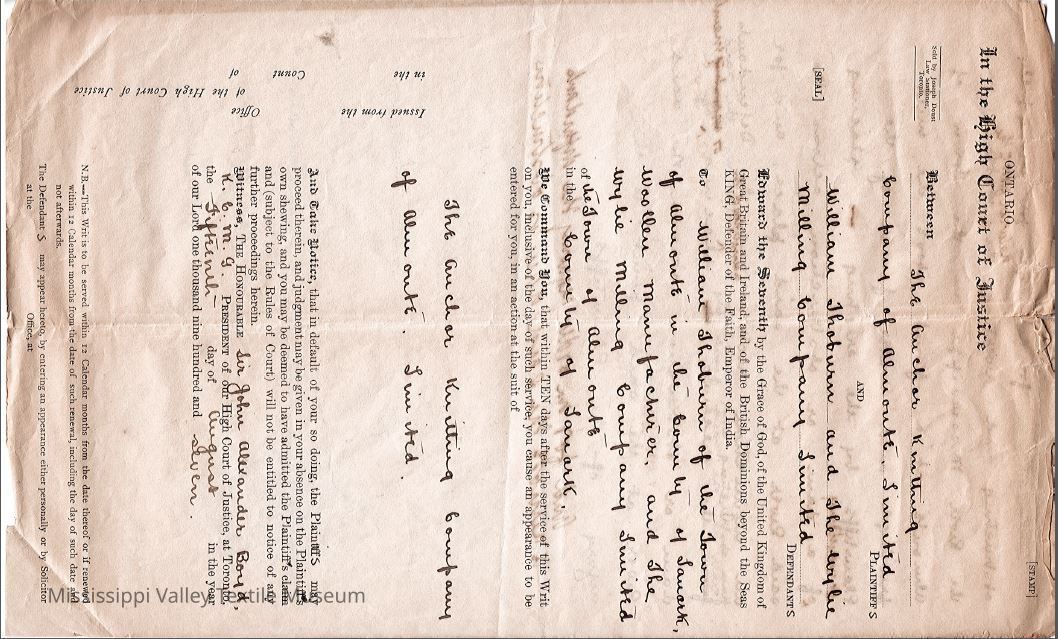 [STAMP]
ONTARIO.
In the High Court of Justice
Sold by Joseph Doust
Law Stationer
Toronto.
Between
The Anchor Knitting
Company of Almonte. Limited
PLAINTIFF S
AND
William Thoburn and The Wylie
Milling Company Limited
DEFENDANT S
[SEAL]
Edward the Seventh by the Grace of God, of the United Kingdom of
Great Britain and Ireland, and of the British Dominions beyond the Seas
KING, Defender of the Faith, Emperor of India.
To William Thoburn of the Town
of Almonte in the County of Lanark,
Woollen Manufacturer, and The
Wylie Milling Company Limited
of the Town of Almonte
in the County of Lanark.
We Command You, that within TEN days after the service of this Writ
on you, inclusive of the day of such service, you cause an appearance to be
entered for you, in an action at the suit of
The Anchor Knitting Company
of Almonte. Limited.
And Take Notice, that in default of your so doing, the Plaintiffs may
proceed therein, and judgment may be given in your absence on the Plaintiffs
own shewing, and you may be deemed to have admitted the Plaintiff's claim
and (subject to the Rules of Court) will not be entitled to notice of any
further proceedings herein.
Witness, THE HONOURABLE Sir John Alexander Boyd,
K. C. M. G. PRESIDENT of our High Court of Justice, at Toronto,
the Fifteenth day of August in the year
of our Lord one thousand nine hundred and Seven.
N.B.—This Writ is to be served within 12 Calendar months from the date thereof, or if renewed
within 12 Calendar months from the date of such renewal, including the day of such date and
not afterwards.
The Defendant S may appear hereto, by entering an appearance either personally or by Solicitor
at the Office, at
Issued from the Office
of the High Court of Justice
in the Count of
Mississippi Valley Textile Museum